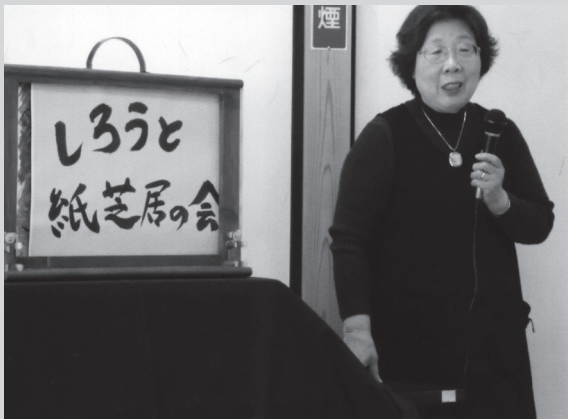 煙
しろうと
紙芝居の会